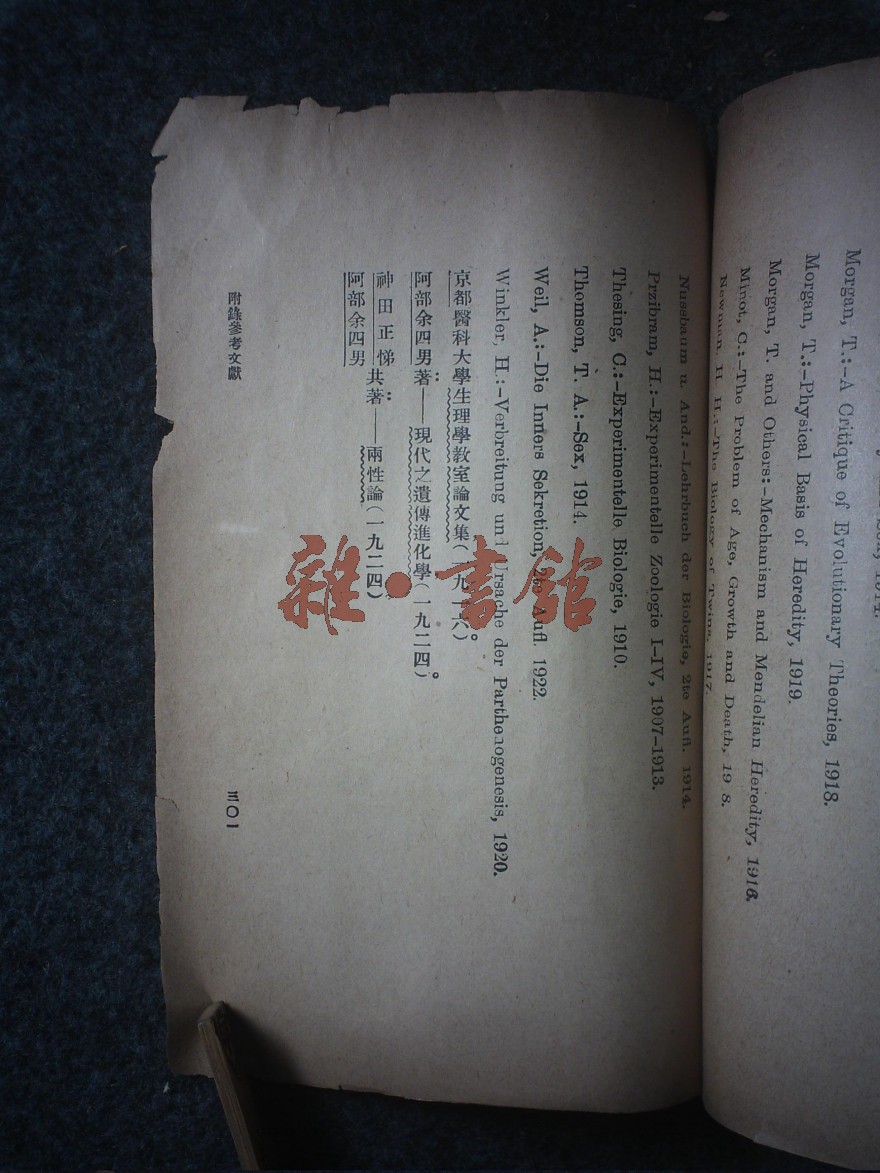 1914.
Morgan, T.:—A Critique of Evolutionary Theories, 1918.
Morgan, T.:—Physical Basis of Heredity, 1919.
Morgan, T. and Others:—Mechanism and Mendelian Heredity, 1916.
Minot, C.:—The Problem of Age, Growth and Death, 19 8.
Newman, H. H.:—The Biology of Twins, 1917.
Nussbaum u. And.:—Lehrbuch der Biologie, 2te Aufl. 1914.
Przibram, H.:—Experimentelle Zoologie I—IV, 1907-1913.
Thesing, C.:—Experimentelle Biologie, 1910.
Thomson, T. A.:—Sex, 1914.
Weil, A.:—Die Inners Sekretion, 2te Aufl. 1922.
Winkler, H.:—Verbreitung und Ursache der Parthenogenesis, 1920.
京都醫科大學生理學教室論文集(一九一六)。
阿部余四男著:——現代之遺傳進化學(一九二四)。
神田正悌
阿部余四男
共著:——兩性論(一九二四)
附錄參考文獻
三〇一
雜·書館